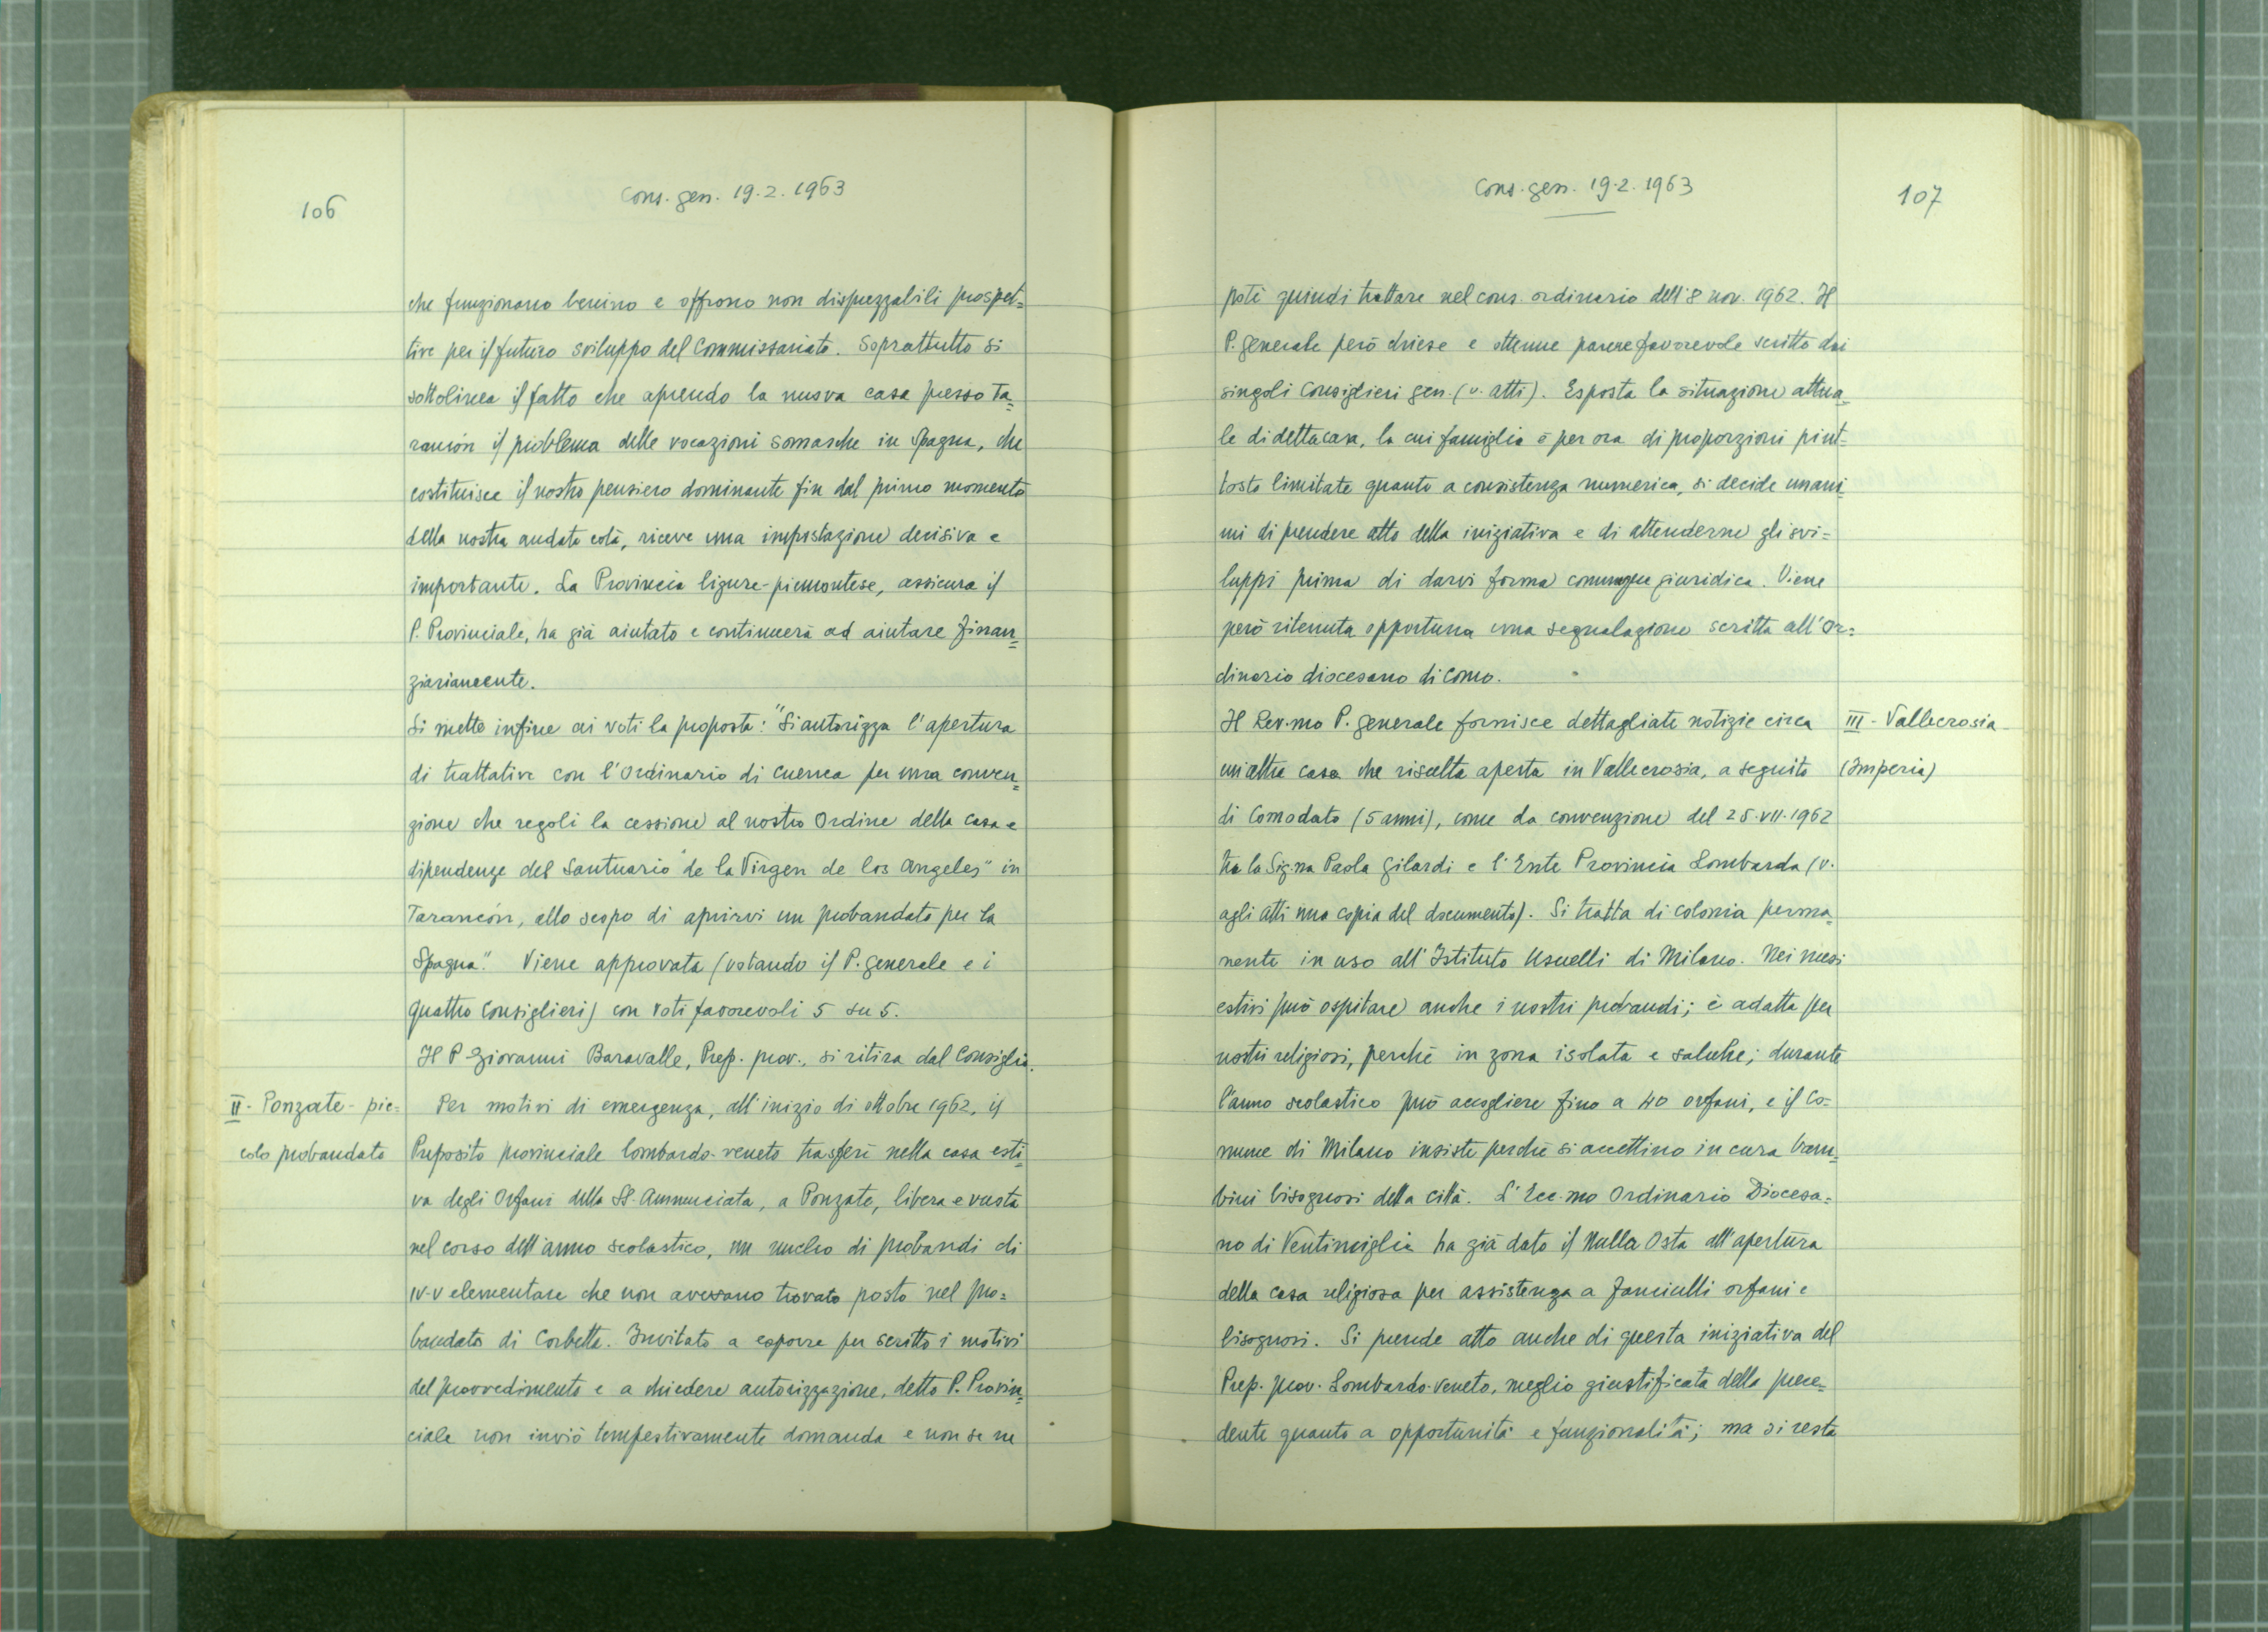 106
Cons. gen. 19.2.1963
che funzionano benino e offrono non disprezzabili prospet=
tive per il futuro sviluppo del Commissariato. Soprattutto si
sottolinea il fatto che aprendo la nuova casa presso Ta=
rancón il problema delle vocazioni somasche in Spagna, che
costituisce il nostro pensiero dominante fin dal primo momento
della nostra andata colà, riceve una impostazione decisiva e
importante. La Provincia ligure-piemontese, assicura il
P. Provinciale, ha già aiutato e continuerà ad aiutare finan=
ziariamente.
Si mette infine ai voti la proposta: "Si autorizza l'apertura
di trattative con l'Ordinario di Cuenca per una conven=
zione che regoli la cessione al nostro Ordine della casa e
dipendenze del Santuario "de la Virgen de los Angeles" in
Tarancón, allo scopo di aprirvi un probandato per la
Spagna". Viene approvata (votando il P. generale e i
quattro Consiglieri) con voti favorevoli 5 su 5.
Il P. Giovanni Baravalle, Prep. prov., si ritira dal Consiglio.
II - Ponzate - pic=
colo probandato
Per motivi di emergenza, all'inizio di ottobre 1962, il
Preposito provinciale lombardo-veneto trasferì nella casa esti=
va degli Orfani della SS. Annunciata, a Ponzate, libera e vasta
nel corso dell'anno scolastico, un nucleo di probandi di
IV-V elementare che non avevano trovato posto nel pro=
bandato di Corbetta. Invitato a esporre per scritto i motivi
del provvedimento e a chiedere autorizzazione, detto P. Provin=
ciale non inviò tempestivamente domanda e non se ne
Cons. gen. 19.2.1963
107
potè quindi trattare nel cons. ordinario dell'8 nov. 1962. Il
P. generale però chiese e ottenne parere favorevole scritto dai
singoli Consiglieri gen. (v. atti). Esposta la situazione attua=
le di detta casa, la cui famiglia è per ora di proporzioni piut-
tosto limitate quanto a consistenza numerica, si decide unani
mi di prendere atto della iniziativa e di attenderne gli svi=
luppi prima di darvi forma comunque giuridica. Viene
però ritenuta opportuna una segnalazione scritta all'Or=
dinario diocesano di Como.
Il Rev.mo P. generale fornisce dettagliate notizie circa
III - Vallecrosia
(Imperia)
un'altra casa che risulta aperta in Vallecrosia, a seguito
di Comodato (5 anni), come da convenzione del 25.VII.1962
tra la Sig.na Paola Gilardi e l'Ente Provincia Lombarda (v.
agli atti una copia del documento). Si tratta di colonia perma=
nente in uso all'Istituto Usuelli di Milano. Nei mesi
estivi può ospitare anche i nostri probandi; è adatta per
nostri religiosi, perchè in zona isolata e salubre; durante
l'anno scolastico può accogliere fino a 40 orfani, e il Co=
mune di Milano insiste perchè si accettino in cura bam=
bini bisognosi della città. L'Ecc.mo Ordinario Diocesa=
no di Ventimiglia ha già dato il Nulla Osta all'apertura
della casa religiosa per assistenza a fanciulli orfani e
bisognosi. Si prende atto anche di questa iniziativa del
Prep. prov. Lombardo-veneto, meglio giustificata della prece=
dente quanto a opportunità e funzionalità; ma si resta